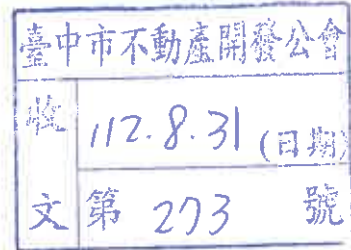 臺中市不動產開發公會
收 112.8.31 (日期)
文 第 273 號